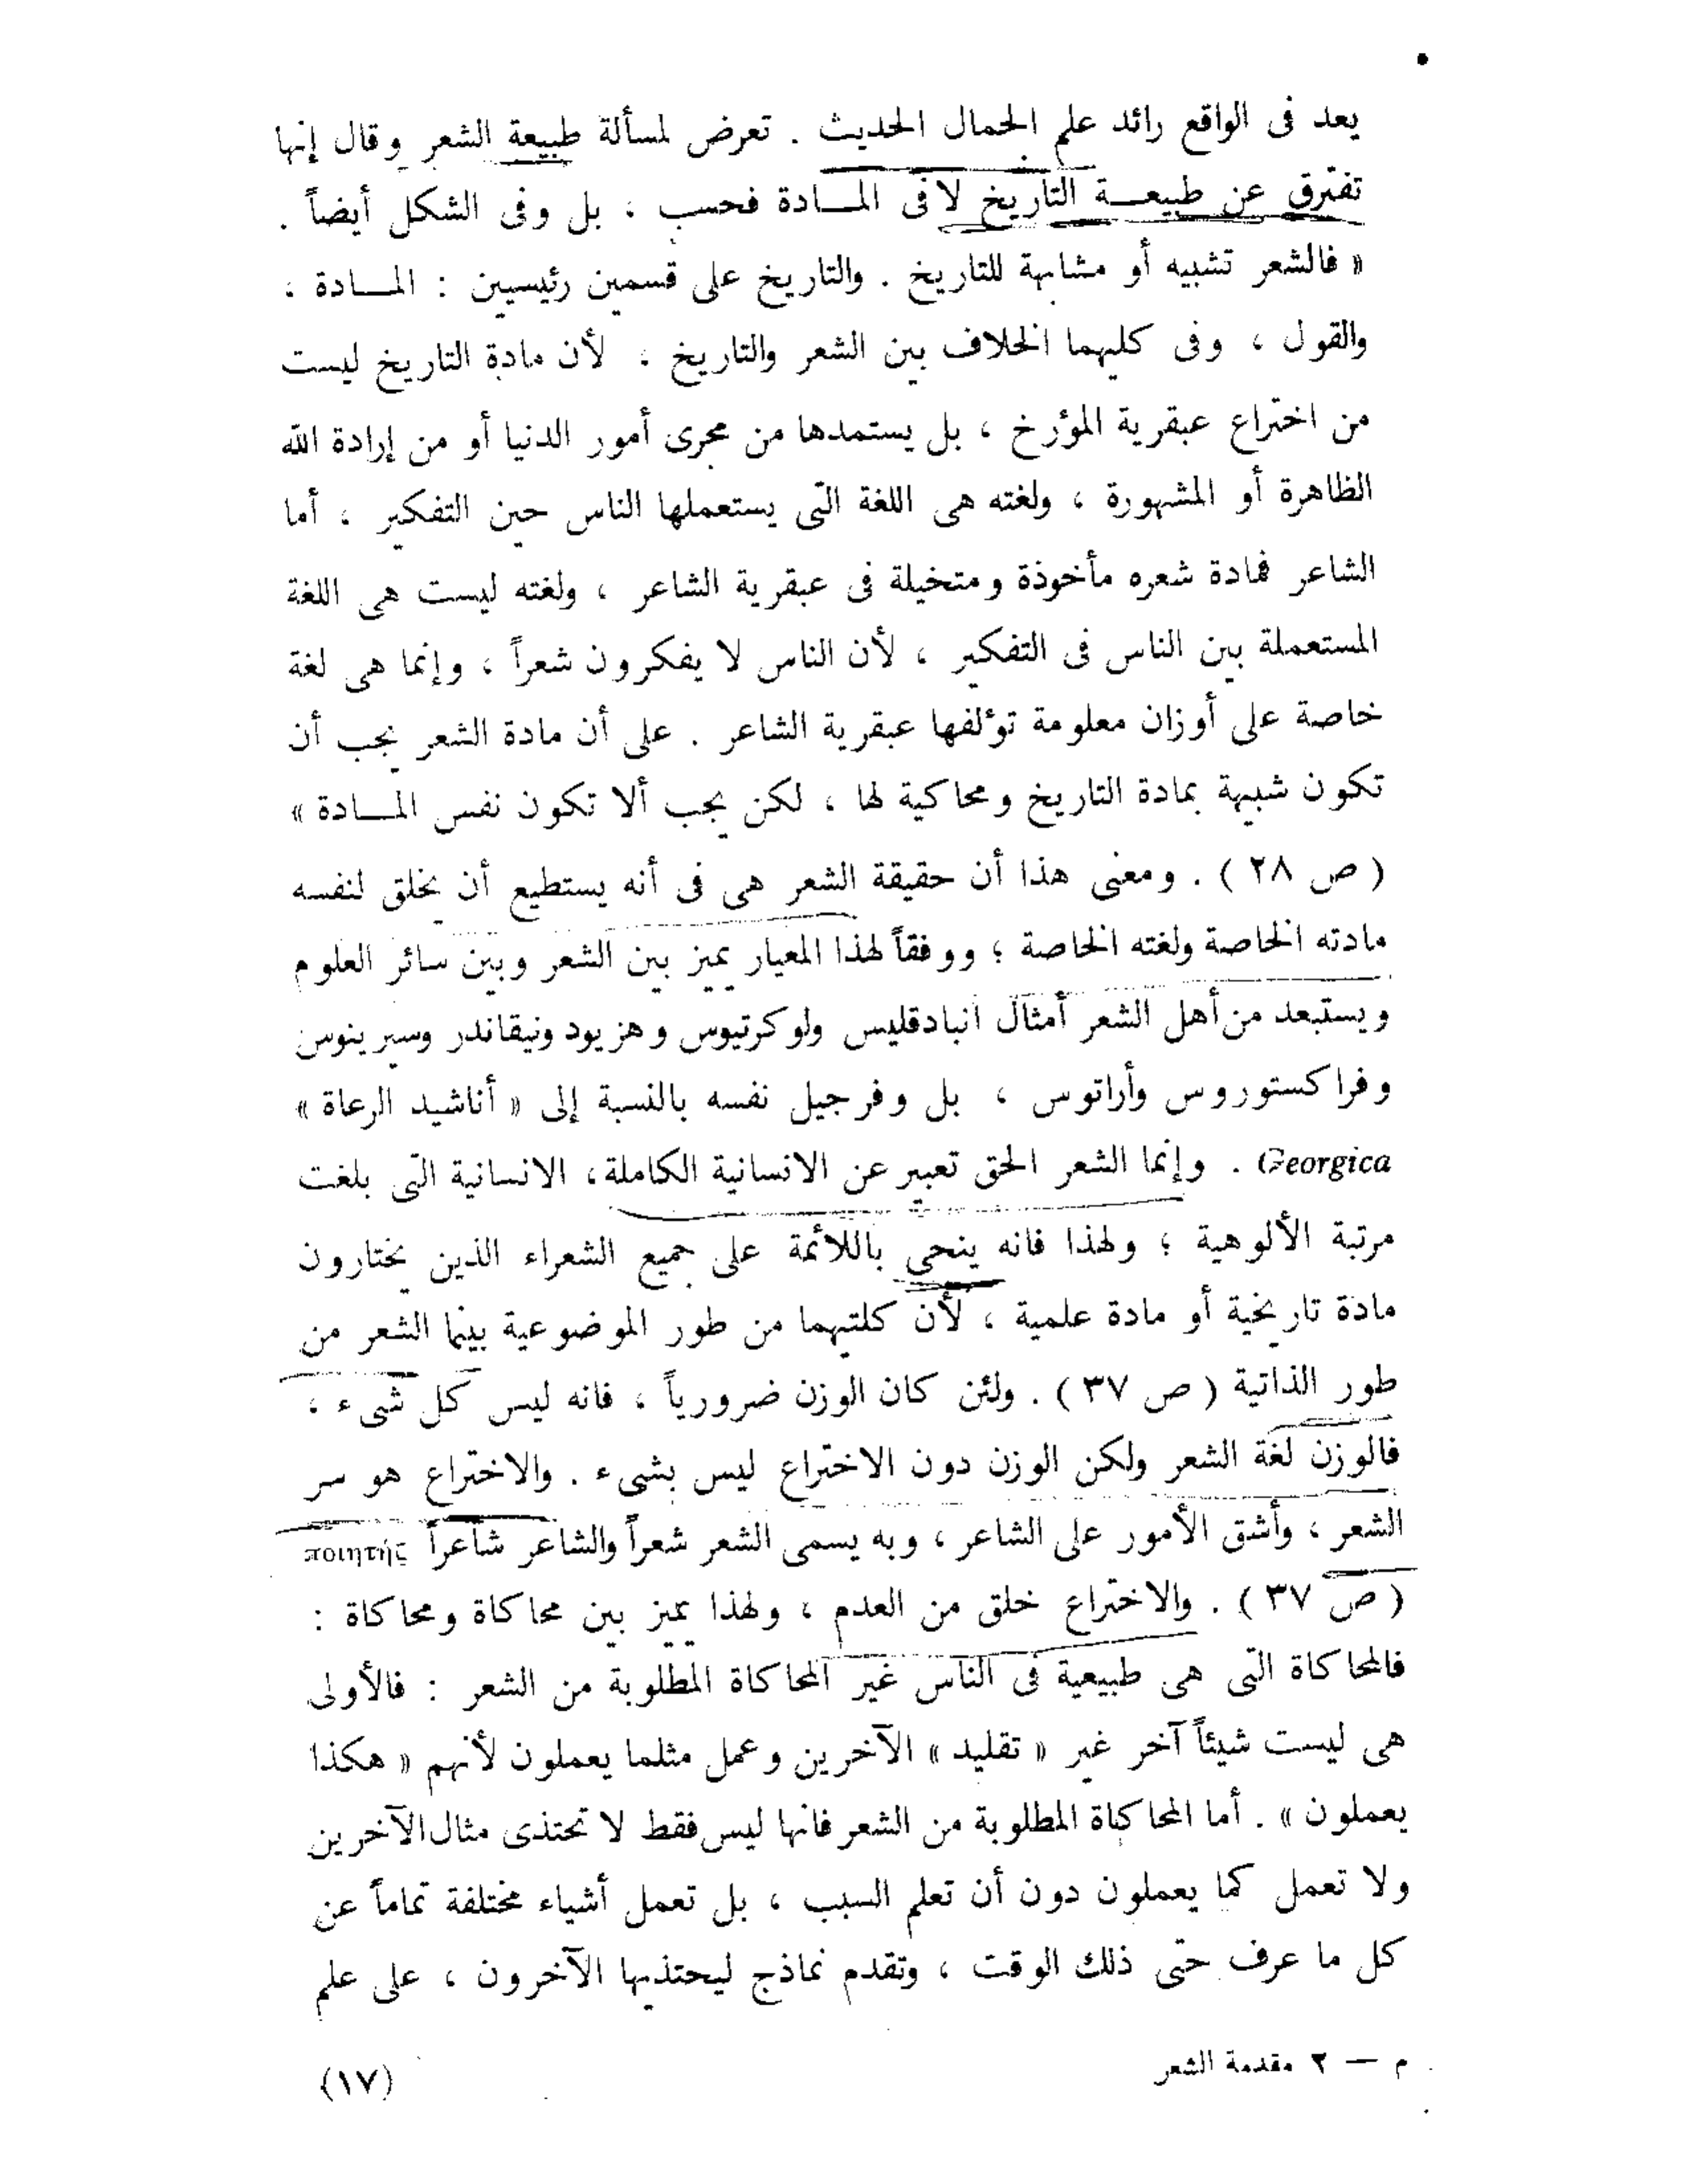 يعد فى الواقع رائد علم الجمال الحديث . تعرض لمسألة طبيعة الشعر وقال إنها
تفترق عن طبيعــة التاريخ لا فى المــادة فحسب ، بل وفى الشكل أيضاً .
« فالشعر تشبيه أو مشابهة للتاريخ . والتاريخ على قسمين رئيسيين : المــادة ،
والقول ، وفى كليهما الخلاف بين الشعر والتاريخ ، لأن مادة التاريخ ليست
من اختراع عبقرية المؤرخ ، بل يستمدها من مجرى أمور الدنيا أو من إرادة الله
الظاهرة أو المشهورة ، ولغته هى اللغة التى يستعملها الناس حين التفكير ، أما
الشاعر فمادة شعره مأخوذة ومتخيلة فى عبقرية الشاعر ، ولغته ليست هى اللغة
المستعملة بين الناس فى التفكير ، لأن الناس لا يفكرون شعراً ، وإنما هى لغة
خاصة على أوزان معلومة تؤلفها عبقرية الشاعر . على أن مادة الشعر يجب أن
تكون شبيهة بمادة التاريخ ومحاكية لها ، لكن يجب ألا تكون نفس المــادة »
( ص ٢٨ ) . ومعنى هذا أن حقيقة الشعر هى فى أنه يستطيع أن يخلق لنفسه
مادته الخاصة ولغته الخاصة ؛ ووفقاً لهذا المعيار يميز بين الشعر وبين سائر العلوم
ويستبعد من أهل الشعر أمثال انبادقليس ولوكرتيوس وهزيود ونيقاندر وسيرينوس
وفراكستوروس وأراتوس ، بل وفرجيل نفسه بالنسبة إلى « أناشيد الرعاة »
Georgica . وإنما الشعر الحق تعبير عن الانسانية الكاملة ، الانسانية التى بلغت
مرتبة الألوهية ؛ ولهذا فانه ينحى باللائمة على جميع الشعراء الذين يختارون
مادة تاريخية أو مادة علمية ، لأن كلتيهما من طور الموضوعية بينما الشعر من
طور الذاتية ( ص ٣٧ ) . ولئن كان الوزن ضرورياً ، فانه ليس كل شىء ،
فالوزن لغة الشعر ولكن الوزن دون الاختراع ليس بشىء . والاختراع هو سر
الشعر ، وأشق الأمور على الشاعر ، وبه يسمى الشعر شعراً والشاعر شاعراً ποιητής
( ص ٣٧ ) . والاختراع خلق من العدم ، ولهذا يميز بين محاكاة ومحاكاة :
فالمحاكاة التى هى طبيعية فى الناس غير المحاكاة المطلوبة من الشعر : فالأولى
هى ليست شيئاً آخر غير « تقليد » الآخرين وعمل مثلما يعملون لأنهم « هكذا
يعملون » . أما المحاكاة المطلوبة من الشعر فانها ليس فقط لا تحتذى مثال الآخرين
ولا تعمل كما يعملون دون أن تعلم السبب ، بل تعمل أشياء مختلفة تماماً عن
كل ما عرف حتى ذلك الوقت ، وتقدم نماذج ليحتذيها الآخرون ، على علم
م — ٢ مقدمة الشعر
(١٧)